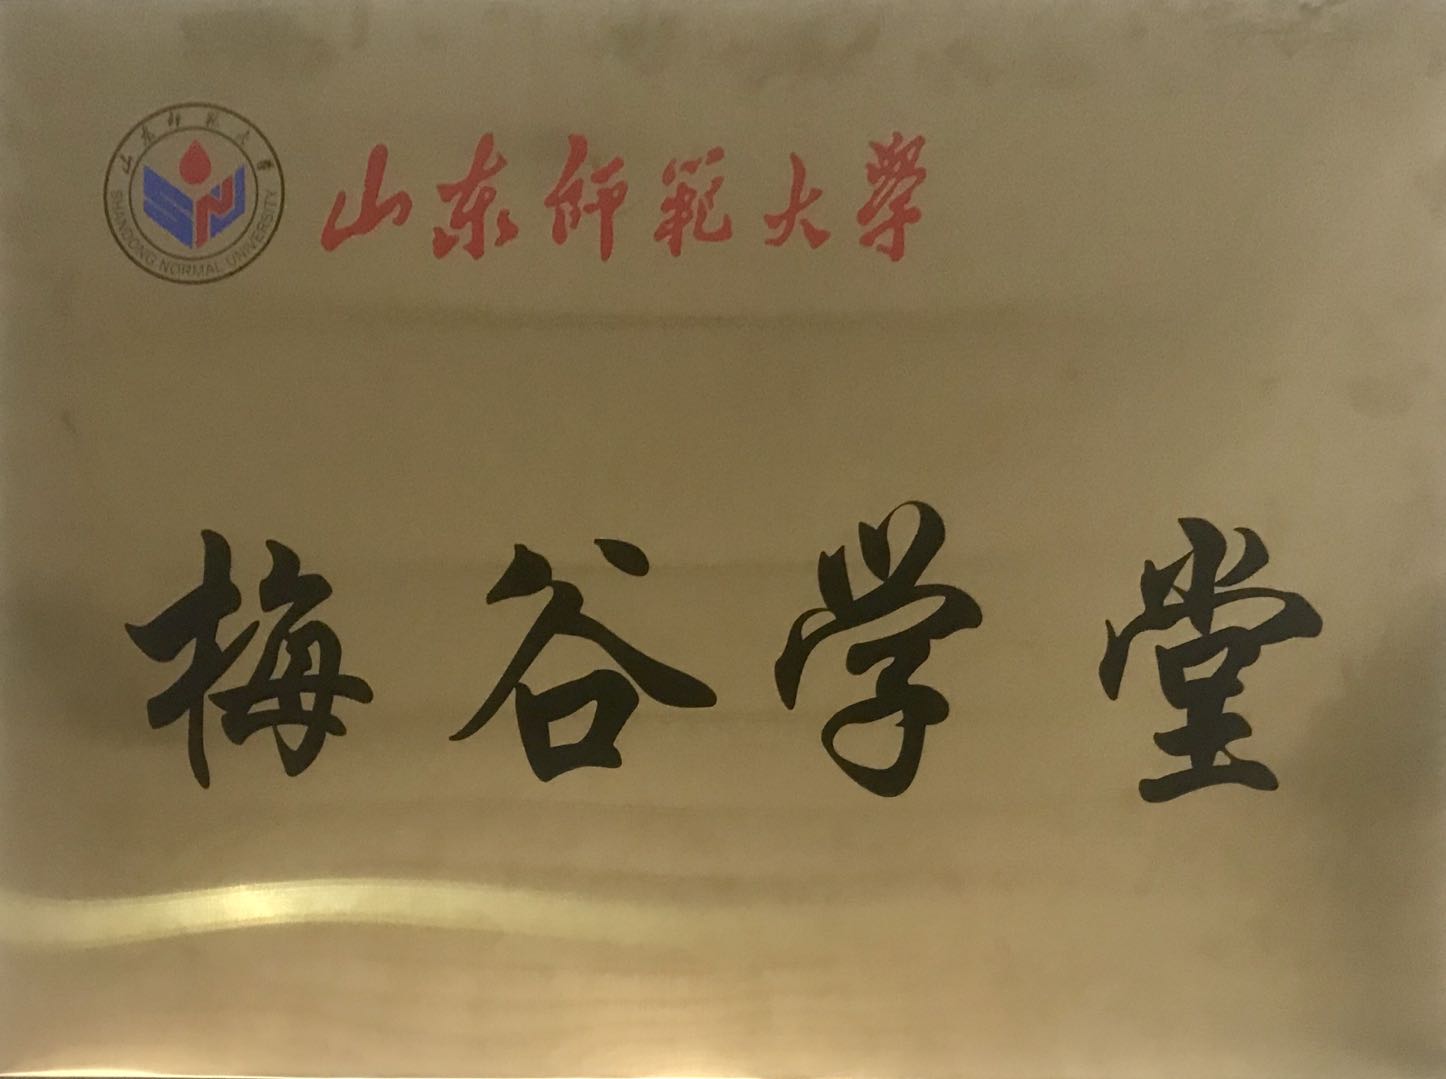 山东师范大学
SHANDONG NORMAL UNIVERSITY
山东师範大学
梅谷学堂